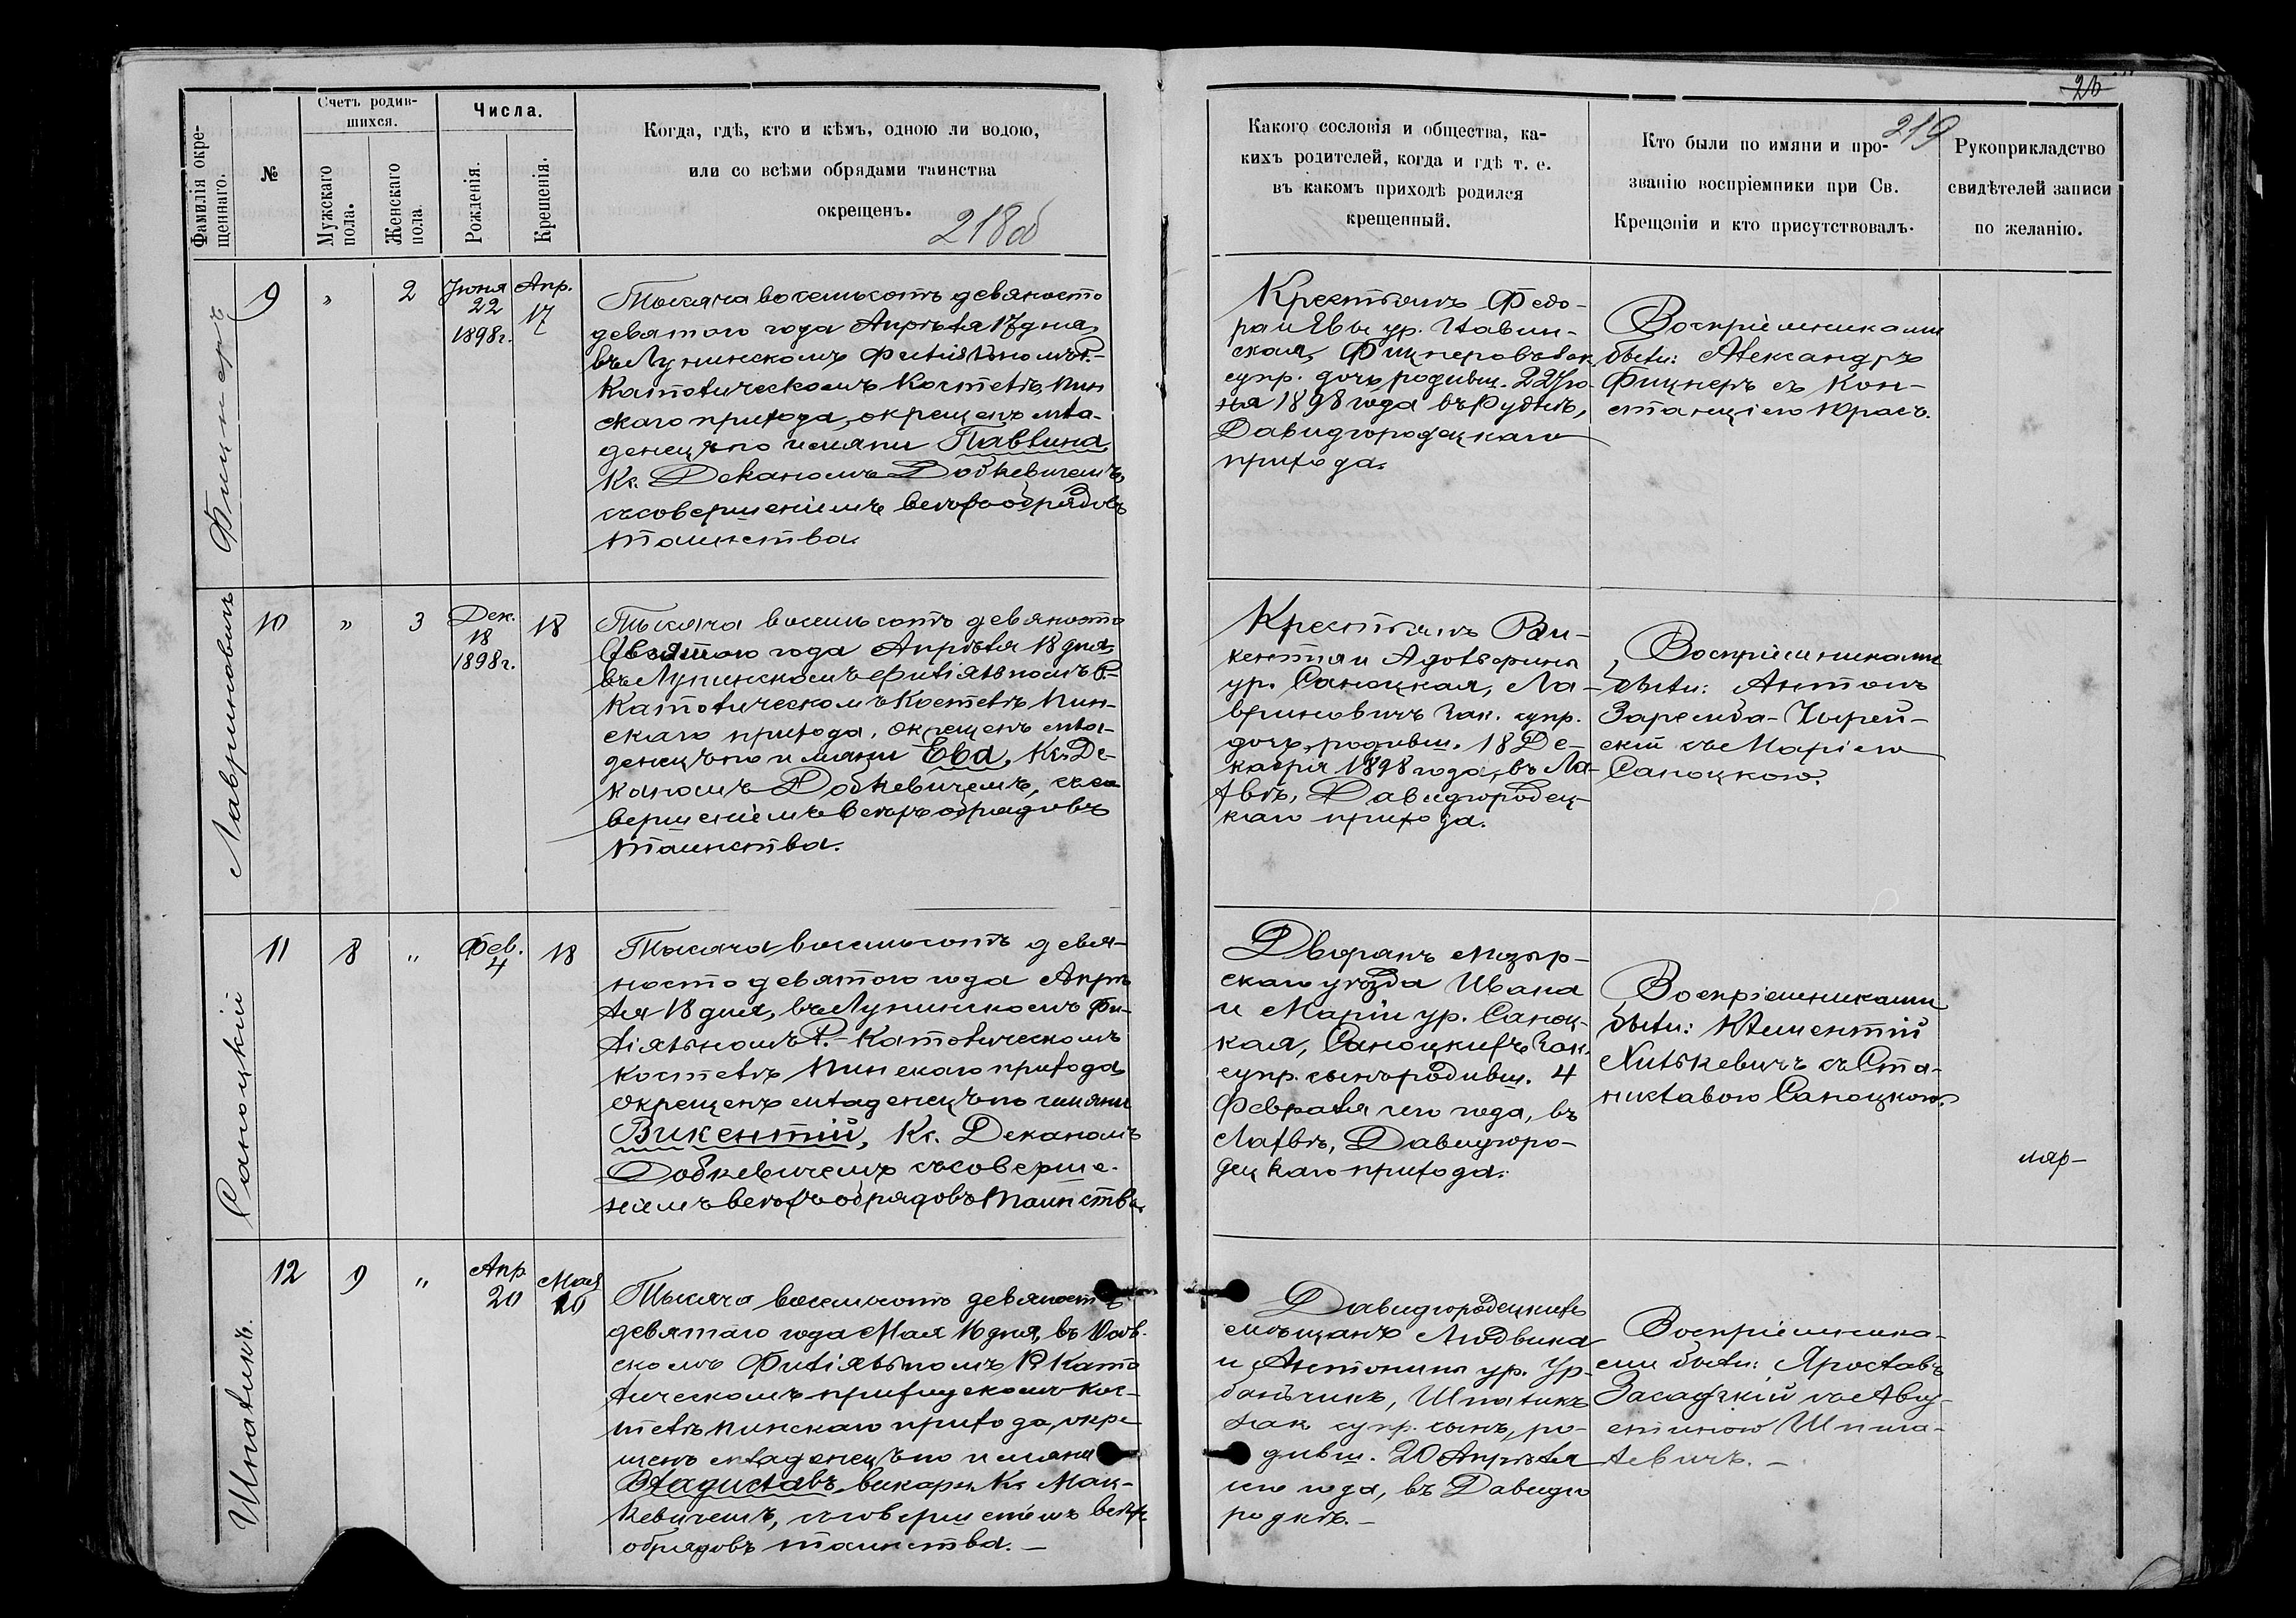 Фамилія окре-
щеннаго.
№
Счетъ родив-
шихся.
Мужскаго
пола.
Женскаго
пола
Числа.
Рожденія.
Крещенія.
Когда, гдѣ, кто и кѣмъ, одною ли водою,
или со всѣми обрядами таинства
окрещенъ.
218об
Фицнеръ
9
"
2
Іюня
22
1898г.
Апр.
17
Тысяча восемьсотъ девяносто
девятого года Апрѣля 17 дня,
въ Лунинскомъ Филіяльномъ Р.-
Католическомъ Костелѣ, Пин
скаго прихода, окрещенъ мла-
денецъ по имяни Павлина
Кс. Деканомъ Добкевичемъ,
съ совершеніемъ всѣхъ обрядовъ
таинства.
Лавриновичъ
10
"
3
Дек.
18
1898г.
18
Тысяча восемьсотъ девяносто
девятого года Апрѣля 18 дня,
въ Лунинскомъ Филіяльномъ Р.-
Католическомъ Костелѣ Пин-
скаго прихода, окрещенъ мла-
денецъ по имяни Ева, Кс. Де-
каномъ Добкевичемъ, съ со
вершеніемъ всѣхъ обрядовъ
таинства.
Саноцкій
11
8
"
Фев.
4
18
Тысяча восемьсотъ девя-
носто девятого года Апрѣ
ля 18 дня, въ Лунинскомъ Фи-
ліяльномъ Р.-Католическомъ
Костелѣ Пинскаго прихода,
окрещенъ младенецъ по имяни
Викентій, Кс. Деканомъ
Добкевичемъ съ соверше-
ніемъ всѣхъ обрядовъ таинства.
Шпаликъ.
12
9
"
Апр
20
Мая
16
Тысяча восемьсотъ девяносто
девятаго года Мая 16 дня, въ
скомъ Филіяльномъ Р. Като
лическомъ приходскомъ Кос-
телѣ Пинскаго прихода, окре
щенъ младенецъ по имяни
Владиславъ, викар. Кс. Мац-
кевичемъ, съ совершеніемъ всѣхъ
обрядовъ таинства. —
26
219
Какого сословія и общества, ка-
кихъ родителей, когда и гдѣ т. е.
въ какомъ приходѣ родился
крещенный.
Кто были по имяни и про-
званію воспріемники при Св.
Крещэніи и кто присутствовалъ.
Рукоприкладство
свидѣтелей записи
по желанію.
Крестьянъ Федо-
ра и Евы ур. Навин-
ская, Фицнеровъ зак.
супр. дочь, родивш. 22 Ію-
ня 1898 года въ Рубль,
Давидгородецкаго
прихода.
Воспріемниками
были: Александръ
Фицнеръ съ Кон-
станціею Юрасъ.
Крестьянъ Ви-
кентія и
ур. Саноцкая, Ла-
вриновичъ зак. супр.
дочь, родивш. 18 Де-
кабря 1898 года, въ Ла-
хвѣ, Давидгородец-
каго прихода.
Воспріемниками
были: Антонъ
Заремба-
скій съ Маріею
Саноцкою.
Дворянъ Мозыр-
скаго уѣзда Ивана
и Маріи ур. Саноц-
кая, Саноцкихъ зак.
супр. сынъ родивш. 4
Февраля сего года, въ
Лахвѣ, Давидгоро-
децкаго прихода.
Воспріемниками
были: Клементій
Хилькевичъ съ Ста-
ниславою Саноцкою.
Давидгородецкихъ
мѣщанъ Людвика
и Антонины ур. Ур-
банчикъ, Шпаликъ
зак супр. сынъ, ро-
дивш. 20 Апрѣля
сего года, въ Давидго
родкѣ. —
Воспріемника-
ми были: Ярославъ
Засадзкій съ Авгу-
стиною Шпила-
левичъ. —